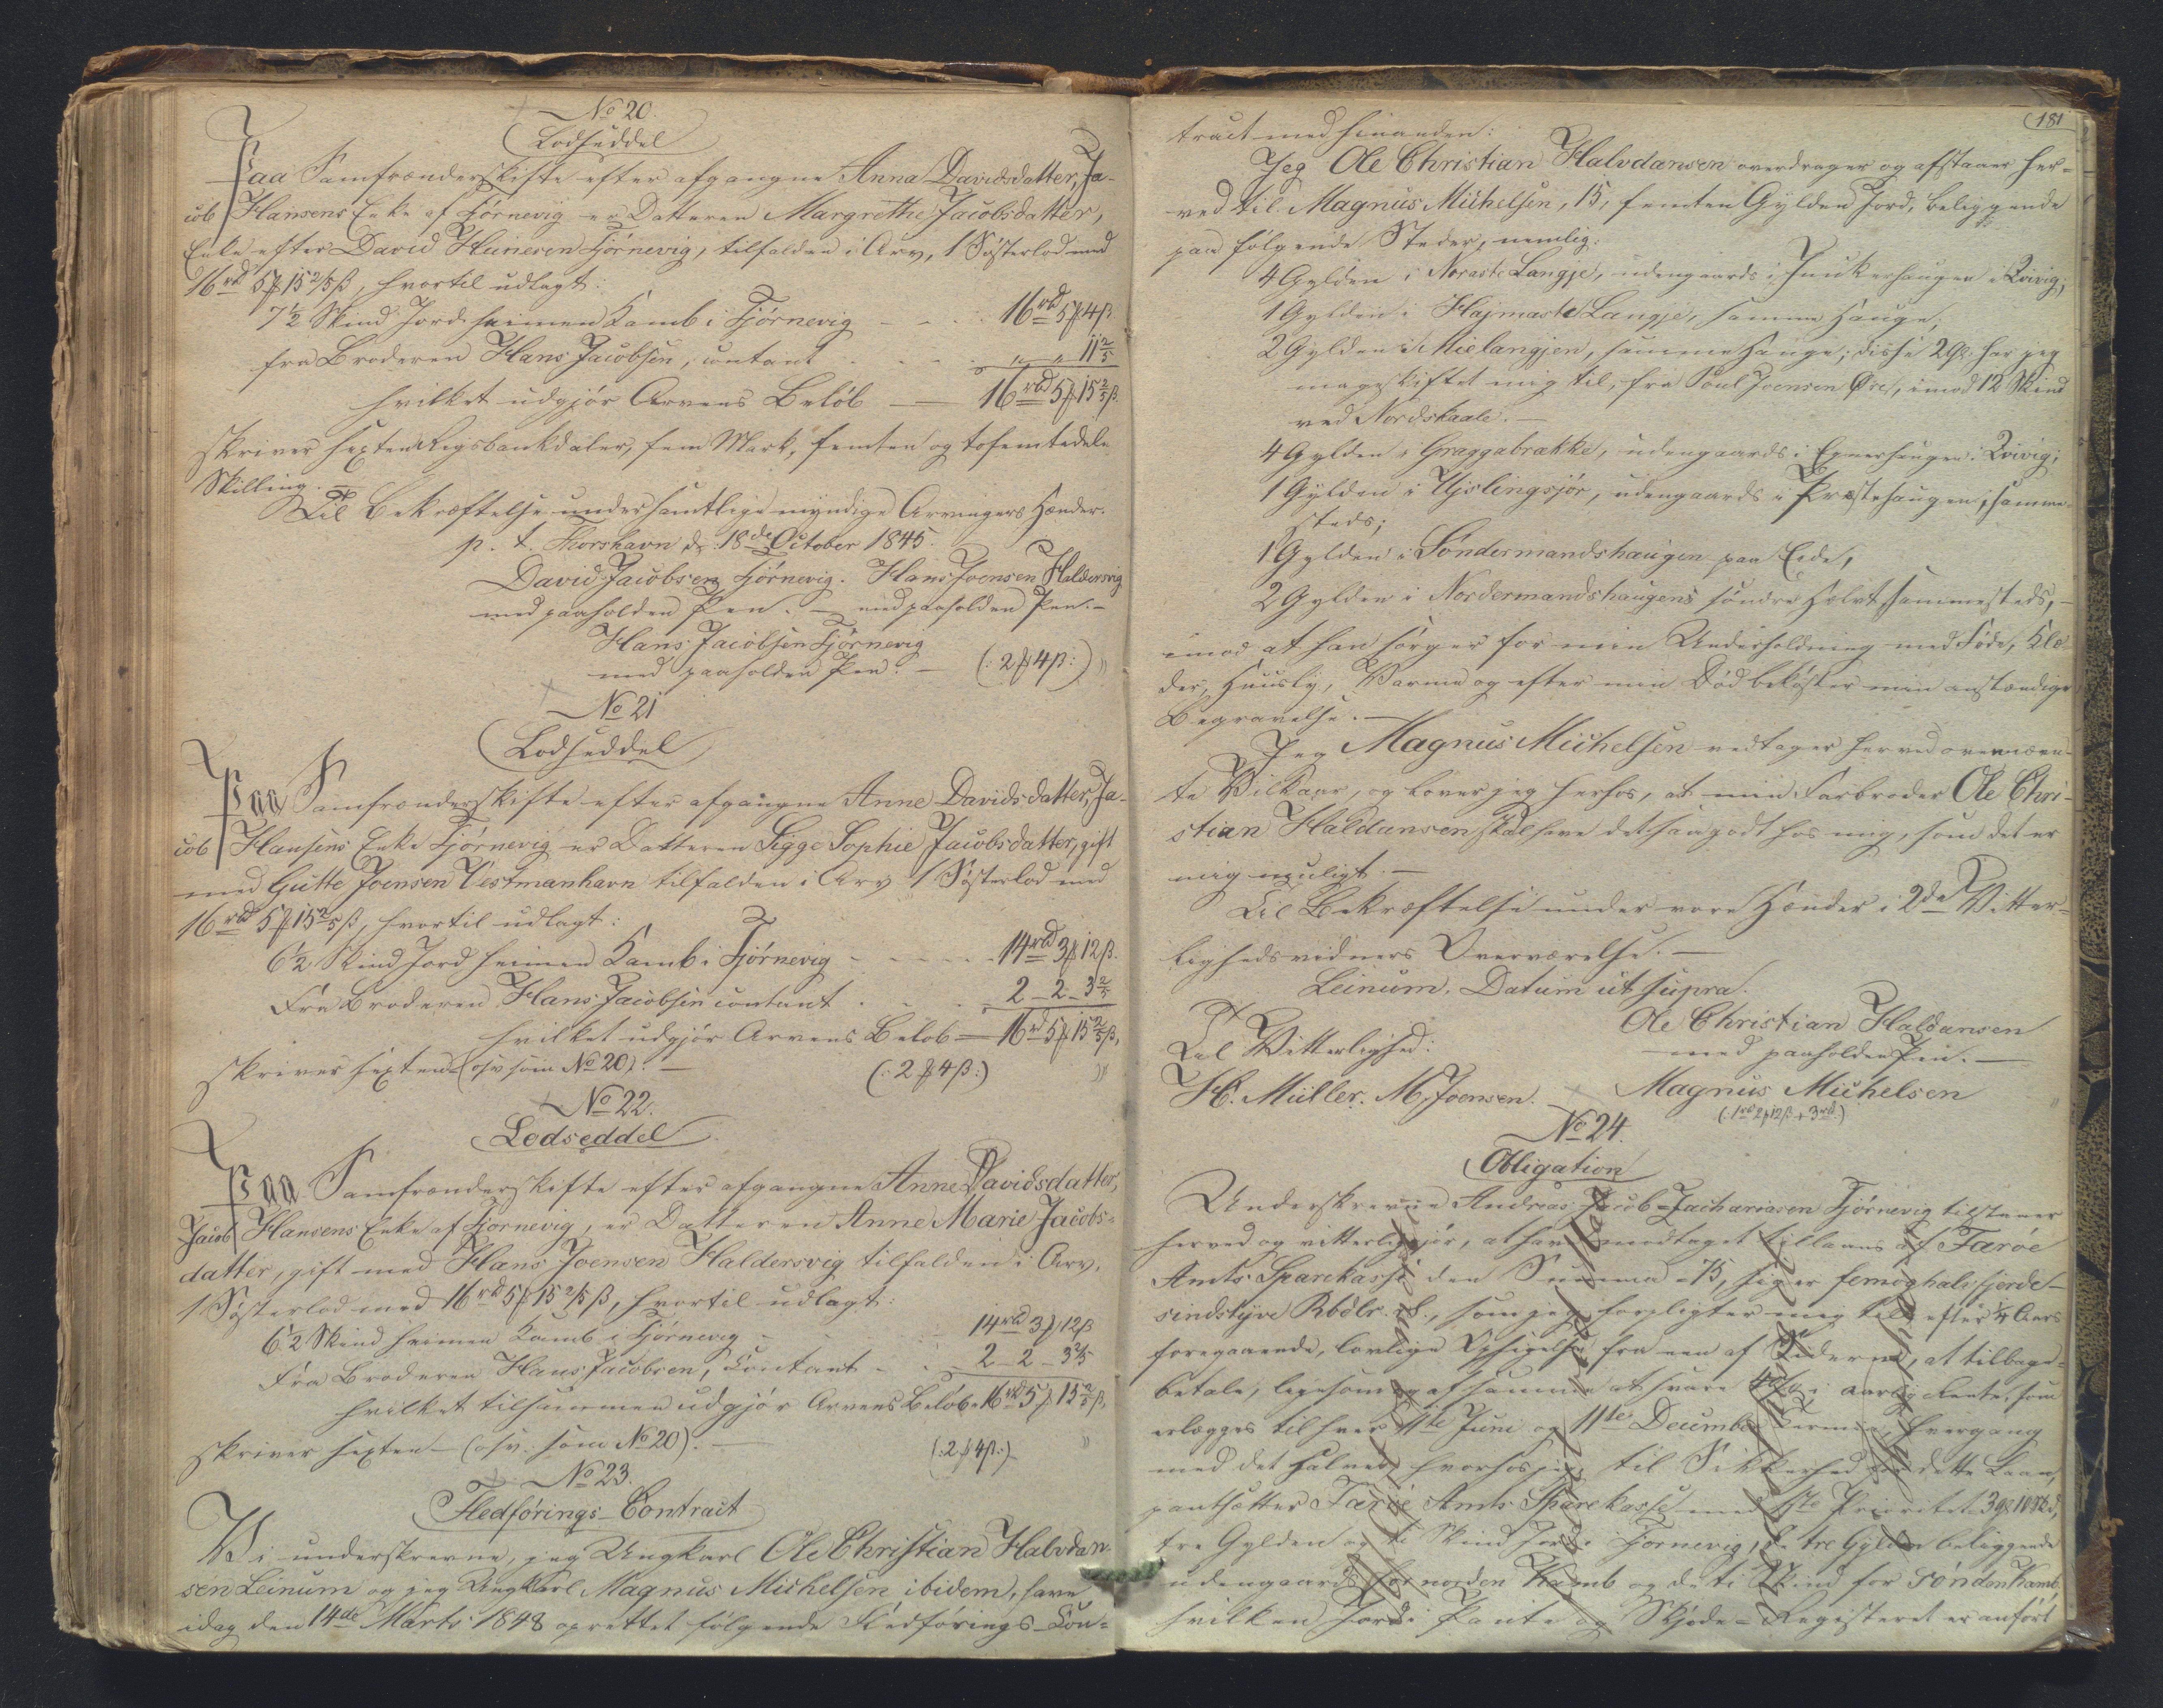 No 20.
Lodseddel
Paa Samfrænderskifte efter afgangne Anna Davidsdatter, Ja-
cob Hansens Enke af Tjörnevig er Datteren Margrethe Jacobsdatter,
Enke efter David Heinesen Tjörnevig, tilfalden i Arv, 1 Søsterlod med
16rbd 5 ꝟ 15 2/5 ß, hvortil udlagt:
7½ Skind Jord heimen Kamb i Tjörnevig - - - 16rbd 5 ꝟ 4 ß
fra Broderen Hans Jacobsen, contant . . . „ „ 11 2/5
hvilket udgjör Arvens Belöb — 16rbd 5 ꝟ 15 2/5 ß.
skriver sexten Rigsbankdaler, fem Mark, femten og tofemtedele
Skilling. —
Til Bekræftelse under samtlige myndige Arvingers Hænder.
p. t. Thorshavn d. 18de October 1845.
David Jacobsen Tjörnevig. Hans Joensen Haldersvig
med paaholden Pen. — med paaholden Pen. -
Hans Jacobsen Tjörnevig
med paaholden Pen. — (: 2 ꝟ 4 ß :) „
No 21
Lodseddel
Paa Samfrænderskifte efter afgangne Anne Davidsdatter, Ja-
cob Hansens Enke Tjörnevig er Datteren Sigge Sophie Jacobsdatter, gift
med Gutte Joensen Vestmanhavn tilfalden i Arv 1 Søsterlod med
16rbd 5 ꝟ 15 2/5 ß, hvortil udlagt:
6½ Skind Jord heimen Kamb i Tjörnevig - - - - 14rbd 3 ꝟ 12 ß.
Fra Broderen Hans Jacobsen contant . . . 2 - 2 - 3 2/5
hvilket udgjör Arvens Belöb — 16rbd 5 ꝟ 15 2/5 ß,
skriver sexten (osv som No 20). — (: 2 ꝟ 4 ß :) „
No 22.
Lodseddel
Paa Samfrænderskifte efter afgangne Anne Davidsdatter,
Jacob Hansens Enke af Tjornevig, er Datteren Anne Marie Jacobs-
datter, gift med Hans Joensen Haldersvig tilfalden i Arv,
1 Søsterlod med 16rbd 5 ꝟ 15 2/5 ß, hvortil udlagt:
6½ Skind heimen Kamb i Tjörnevig - - - 14rbd 3 ꝟ 12 ß
Fra Broderen Hans Jacobsen, Contant - . - 2 - 2 - 3 2/5
hvilket tilsammen udgjör Arvens Belöb 16rbd 5 ꝟ 15 2/5 ß,
skriver sexten — (osv. som No 20). — (: 2 ꝟ 4 ß :) „
No 23.
Fledførings-Contract
Vi underskrevne, jeg Ungkarl Ole Christian Halvdan-
sen Leinum og jeg Ungkarl Magnus Michelsen ibidem, have
idag den 14de Marts 1848 oprettet følgende Fledførings-Con-
181
tract med hinanden:
Jeg Ole Christian Halvdansen overdrager og afstaaer her-
ved til Magnus Michelsen, 15, femten Gylden Jord, beliggende
paa følgende Steder, nemlig:
4 Gylden i Noraste Langje, udengaards i Junkershaugen i Qvivig;
1 Gylden i Hajmaste Langje, samme Hauge;
2 Gylden i Mielangjen, samme Hauge; disse 2 G. har jeg
mageskiftet mig til, fra Poul Joensen Øre, imod 12 Skind
ved Nordskaale. —
4 Gylden i Graggabrække, udengaards i Egnershaugen i Qvivig;
1 Gylden i Ujslingsjör, udengaards i Præstehaugen, samme-
steds;
1 Gylden i Söndermandshaugen paa Eide,
2 Gylden i Nordermandshaugens söndre Halvt sammesteds, -
imod at han sörger for min Underholdning med Føde, Klæ-
der, Huusly, Varme og efter min Død bekoster min anstændige
Begravelse. —
Jeg Magnus Michelsen vedtager herved ovennævn-
te Vilkaar, og lover jeg herhos, at min Farbroder Ole Chri-
stian Haldansen skal have det saa godt hos mig, som det er
mig muligt. —
Til Bekræftelse under vore Hænder i 2de Vitter-
lighedsvidners Overværelse. —
Leinum. Datum ut supra.
Til Vitterlighed: Ole Christian Haldansen
med paaholden Pen. —
H. Müller. M. Joensen. Magnus Michelsen
(: 1rbd 2 ꝟ 12 ß + 3rbd :) „
No 24.
Obligation
Underskrevne Andreas Jacob Zachariasen Tjörnevig tilstaaer
herved og vitterliggjör, at have modtaget tillaans af Færöe
Amts Sparekasse den Summa - 75, siger femoghalvfjerde-
sindstyve Rbdlr. S., som jeg forpligter mig til, efter ¼ Aars
foregaaende, lovlige Opsigelse fra een af Siderne, at tilbage-
betale, ligesom og af samme at svare 4 % i aarlig Rente, som
erlægges til hver 11te Juni og 11te December Termin, hvergang
med det halve, hvorhos jeg til Sikkerhed for dette Laan,
pantsætter Færöe Amts Sparekasse med 1ste Prioritet 3 G 10 Skd,
tre Gylden og ti Skind Jord i Tjornevig, de tre Gylden beliggende
udengaards for norden Kamb og de ti Skind for sönden Kamb.
hvilken Jord i Pante og Skjöde-Registeret er anført